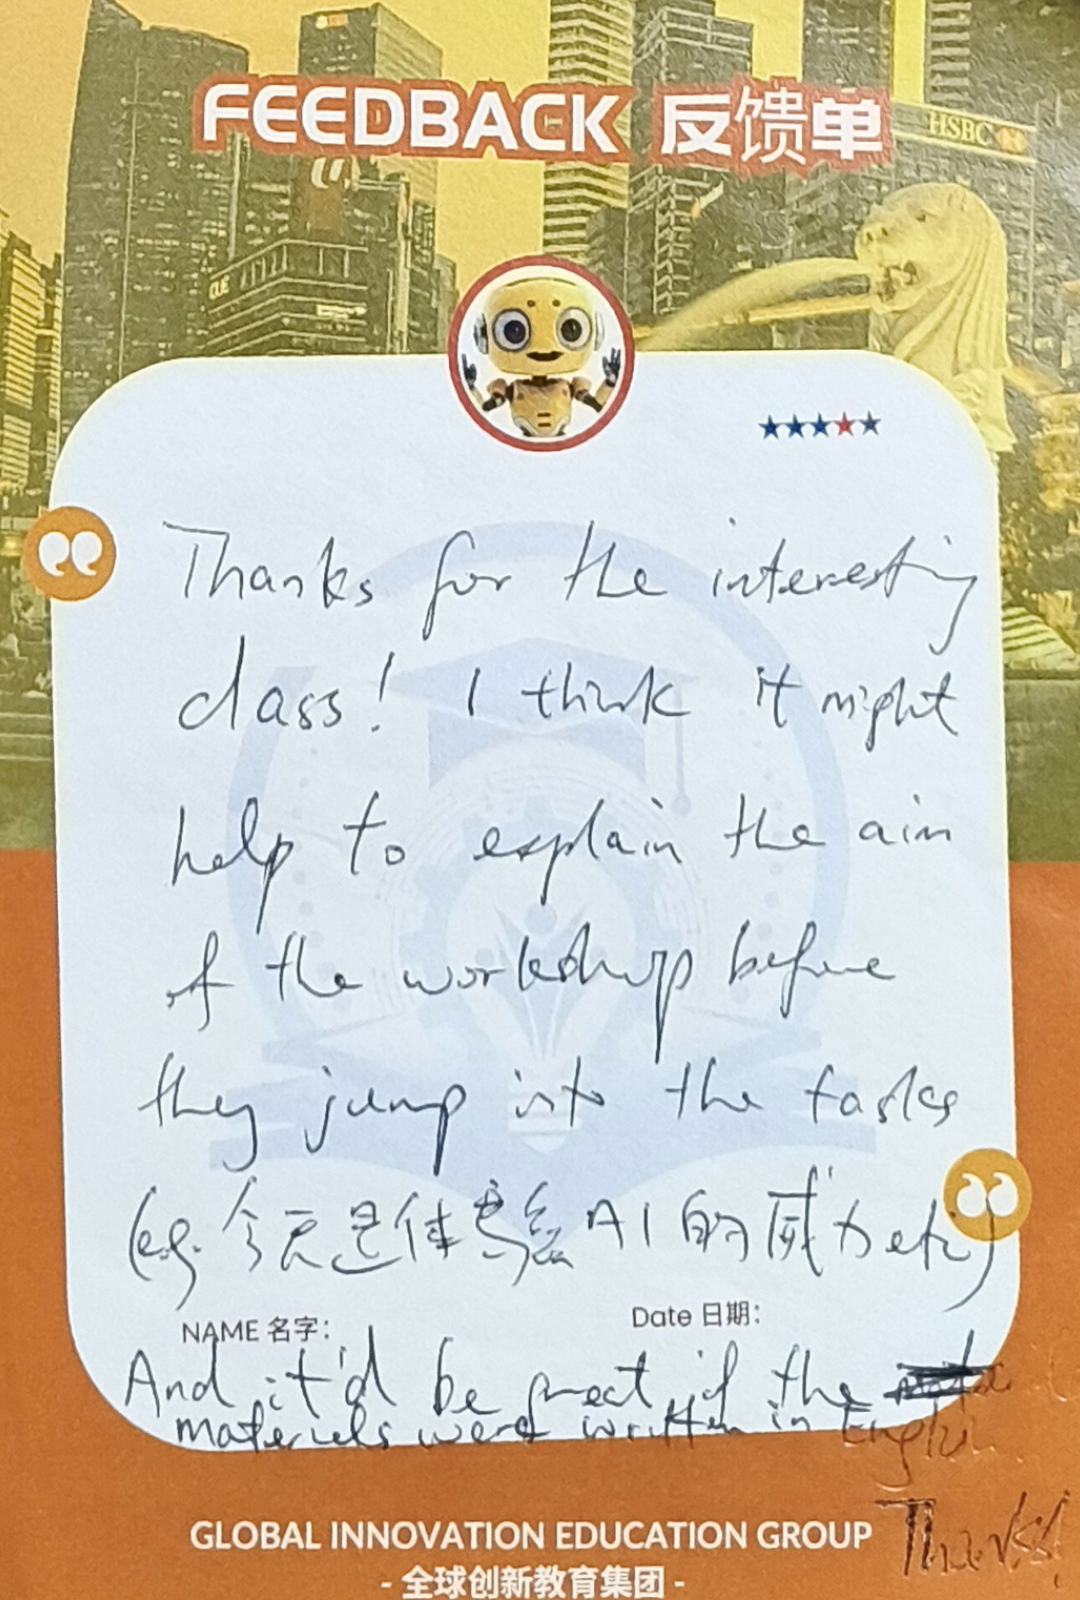 FEEDBACK 反馈单
HSBC
CUE
Thanks for the interesting
class! I think it might
help to explain the aim
of the workshop before
they jump into the tasks
(eg. 今天是体驗AI的威力 etc)
NAME 名字: Date 日期:
And it'd be great if the
materials were written in English.
Thanks!
GLOBAL INNOVATION EDUCATION GROUP
- 全球创新教育集团 -